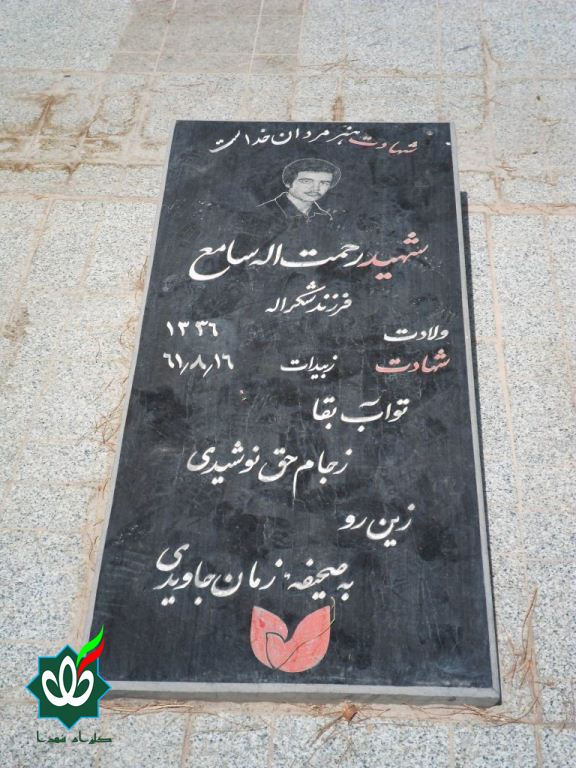 شهادت هنر مردان خداست
شهید رحمت اله سامع
فرزند شکراله
ولادت ۱۳۳۶
شهادت زبیدات ۶۱٫۸٫۱۶
تو آب بقا
ز جام حق نوشیدی
زین رو
به صحیفه زمان جاویدی
گلزار شهدا